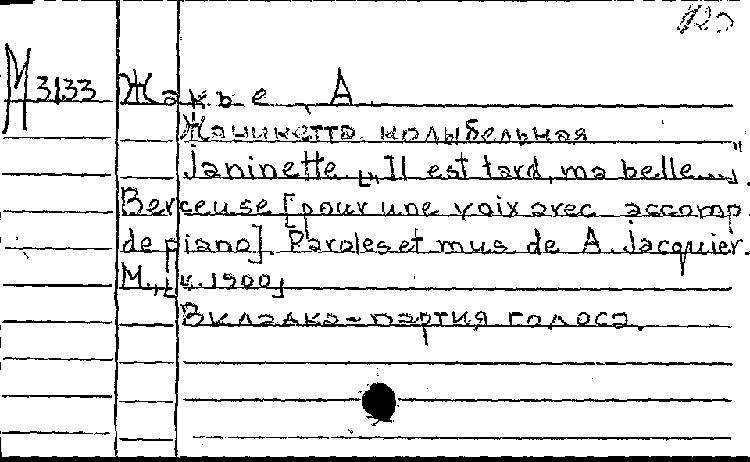 М 3133 Жакье, А.
Жанинетта колыбельная
Janinette [„Il est tard, ma belle...."].
Berceuse [pour une voix avec accomp.
de piano]. Paroles et mus de A. Jacquier.
М., [к. 1900]
Вкладка – партия голоса.